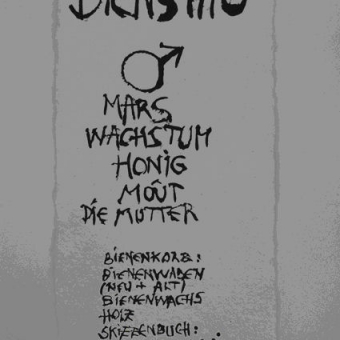 MARS
WACHSTUM
HONIG
MOÛT
DIE MUTTER
BIENENKORB:
BIENENWABEN
(NEU + ALT)
BIENENWACHS
HOLZ
SKIZZENBUCH: